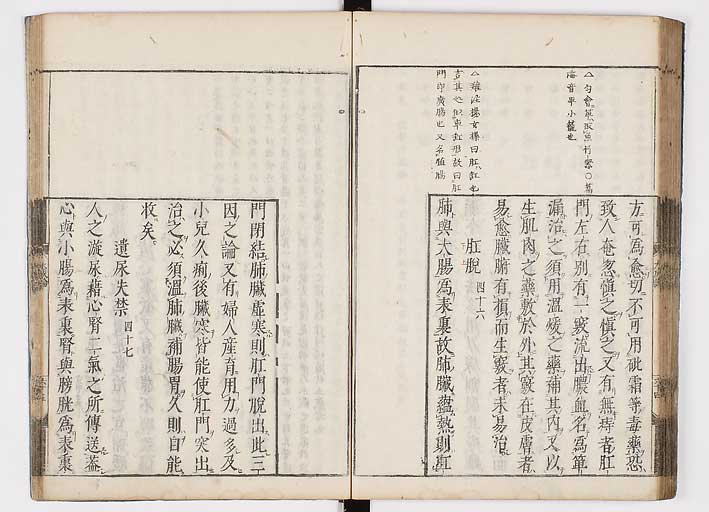 △勻會箄取魚竹器○篇
海音卑小籠也
△難注揚玄操曰肛釭也
言其処似車釭形故曰肛
門即廣腸也又名直腸
方可爲愈切不可用砒霜等毒藥恐
致人奄忽愼之愼之又有無痔者肛
門左右別有一竅流出膿血名爲單
漏治之須用溫煖之藥補其内又以
生肌肉之藥敷於外其竅在皮膚者
易愈臟腑有損而生竅者未易治
肛脫 四十六
肺與大腸爲表裏故肺臟蘊熱則肛
門閉結肺臟虛寒則肛門脫出此三
因之論又有婦人産育用力過多及
小兒久痢後臟寒皆能使肛門突出
治之必須溫肺臟補腸胃久則自能
收矣
遺尿失禁 四十七
人之漩尿藉心腎二氣之所傳送葢
心與小腸爲表裏腎與膀胱爲表裏